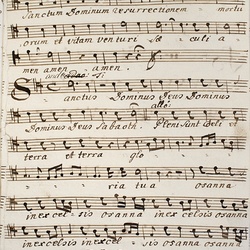 Sanctum Dominum resurrectionem mortu
orum et vitam venturi sæ culi a
men amen amen.
Sanctus Dominus Deus Dominus
allo:
Dominus Deus Sabaoth. Pleni sunt coeli et
terra et terra glo
ria tua osanna
in excel sis osanna in excelsis osanna
in excelsis in excel sis osanna